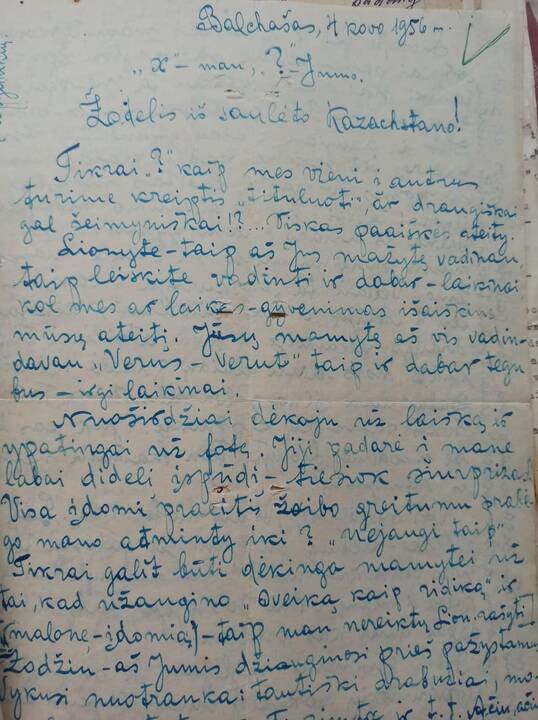 Balchašas, 4 kovo 1956 m.
„x"-man, „?"-Jums.
Žodelis iš saulėto Kazachstano!
Tikrai „?" kaip mes vieni į antrus
turime kreiptis „tituluoti", ar draugiškai
gal šeimyniškai!?... Viskas paaiškės ateity.
Lionyte-taip aš Jus mažytę vadinau
taip leiskite vadinti ir dabar-laikinai
kol mes ar laikas-gyvenimas išaiškins
mūsų ateitį. Jūsų mamytę aš vis vadin-
davau „Verus-Verut", taip ir dabar tegu
bus-irgi laikinai.
Nuoširdžiai dėkoju už laišką ir
ypatingai už foto. Jiji padarė į mane
labai didelį įspūdį-tiesiok siurprizas
Visa įdomi praeitis žaibo greitumu prabė-
go mano atminty iki ? „nejaugi taip"
Tikrai galit būti dėkinga mamytei už
tai, kad užaugino „sveiką kaip ridiką" ir
(malonę-įdomią)-taip man nereiktų Lion. rašyti
Žodžiu-aš Jumis džiauginosi prieš pažystamus
Vykusi nuotrauka: tautiški drabužiai, mo-
ir t.t. Ačiu, ačiu